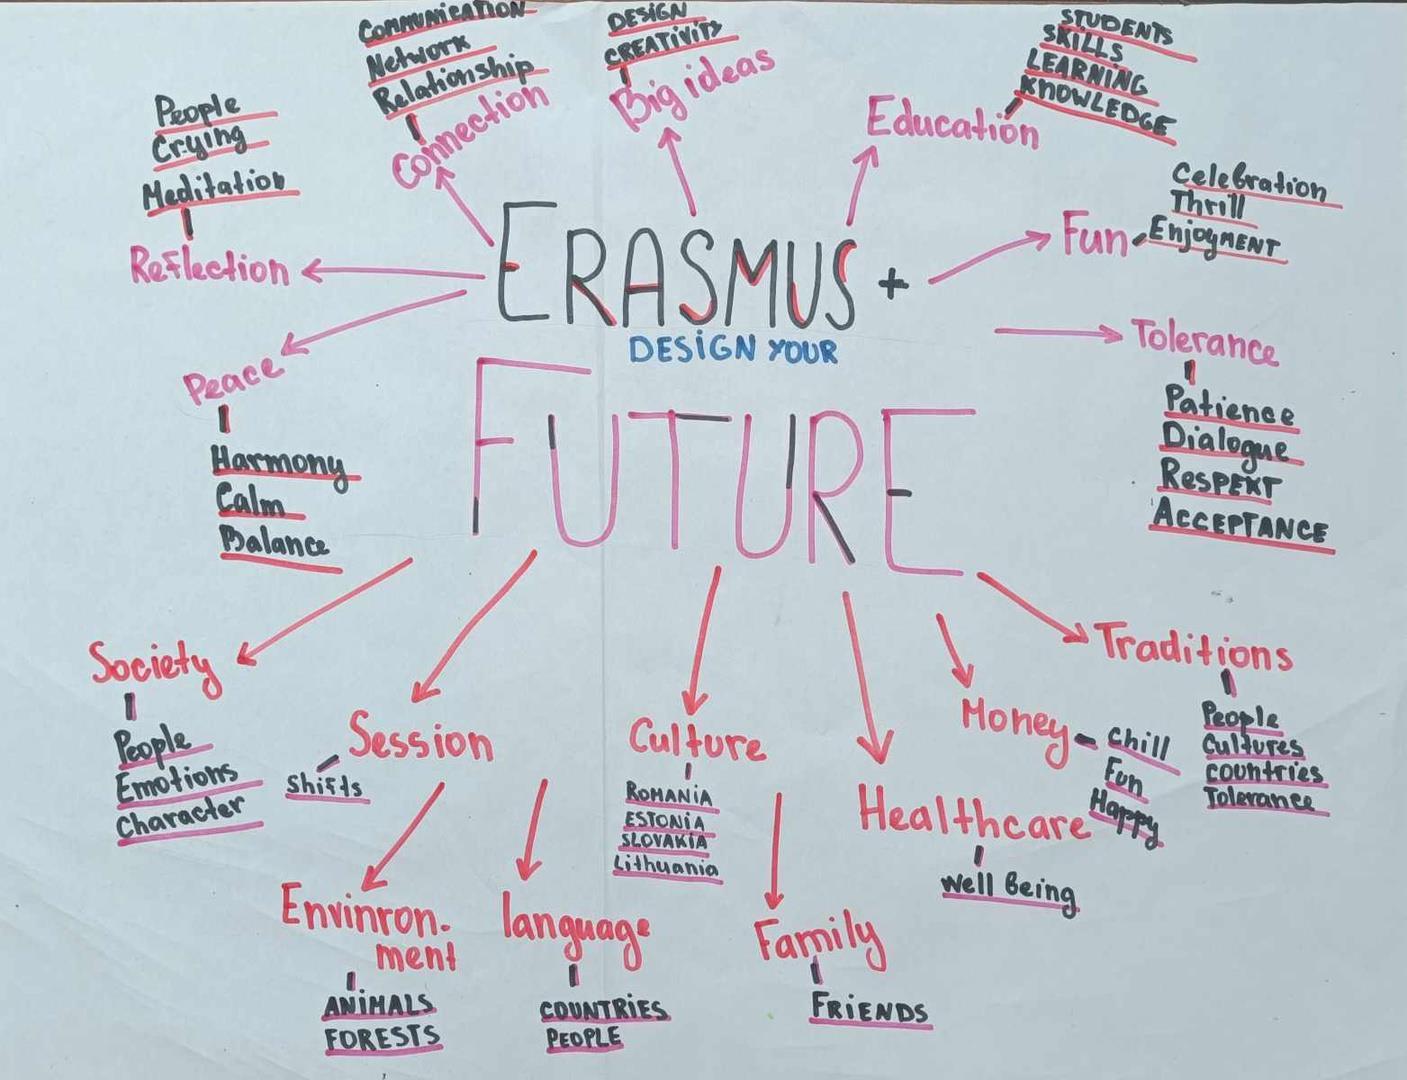 COMMUNICATION
Network
Relationship
Connection
DESIGN
CREATIVITY
Big ideas
STUDENTS
SKILLS
LEARNING
KNOWLEDGE
Education
People
Crying
Meditation
Reflection
Celebration
Thrill
Enjoyment
Fun
ERASMUS +
DESIGN YOUR
FUTURE
Peace
Harmony
Calm
Balance
Tolerance
Patience
Dialogue
RESPEKT
ACCEPTANCE
Society
People
Emotions
Character
Session
Shifts
Culture
ROMANIA
ESTONIA
SLOVAKIA
Lithuania
Money
Chill
Fun
Happy
Traditions
People
Cultures
countries
Tolerance
Healthcare
Well Being
Envinron-
ment
ANIMALS
FORESTS
language
COUNTRIES
PEOPLE
Family
FRIENDS